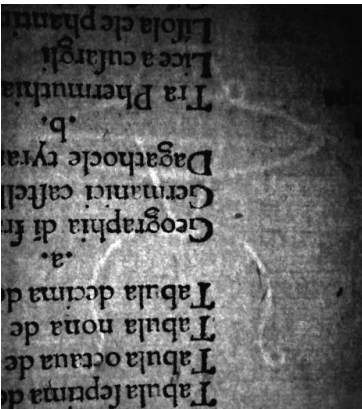 Tabula ſeptima de
Tabula octaua de
Tabula nona de
Tabula decima de
.a.
Geographia di fr
Germanici caſtell
Dagathocle tyra
.b.
Tra Phermuthia
Lice a cuſargli
Liſola ele phantin